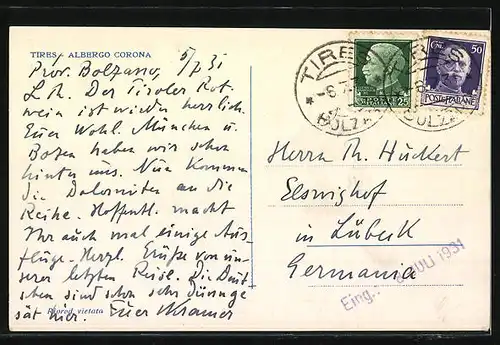 TIRES - ALBERGO CORONA
5/7 31
Prov. Bolzano,
L. Th. Der Tiroler Rot
wein ist wieder herrlich.
Euer Wohl. München u.
Bozen haben wir schon
hinter uns. Nun kommen
die Dolomiten an die
Reihe. Hoffentl. macht
Ihr auch mal einige Aus
flüge. Herzl. Grüße von un-
serer letzten Reise. Die Deut
schen sind schon sehr dünnge
sät hier. Euer Kramer
Riprod. vietata
TIRES
BOLZANO
25
Cent. 50
POSTE ITALIANE
Herrn Th. Hückert
Elswighof
in Lübeck
Germania
Eing.: JULI 1931